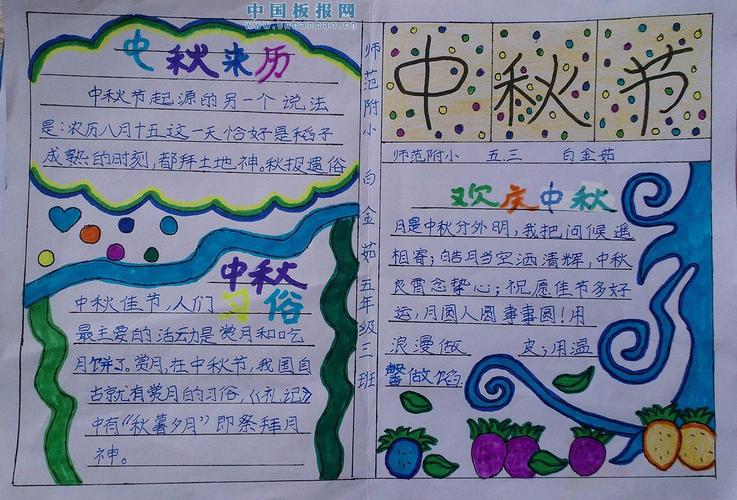 中国板报网
www.cnbanbao.cn
中秋来历
中秋节起源的另一个说法
是:农历八月十五这一天恰好是稻子
成熟的时刻,都拜土地神。秋报遗俗
中秋
习俗
中秋佳节,人们
最主要的活动是赏月和吃
月饼了。赏月,在中秋节,我国自
古就有赏月的习俗,《礼记》
中有“秋暮夕月”即祭拜月
神。
师范附小 白金茹 五年级三班
中秋节
师范附小 五三 白金茹
欢庆中秋
月是中秋分外明,我把问候遥
相寄;皓月当空洒清辉,中秋
良宵念挚心;祝愿佳节多好
运,月圆人圆事事圆!用
浪漫做 皮;用温
馨做馅